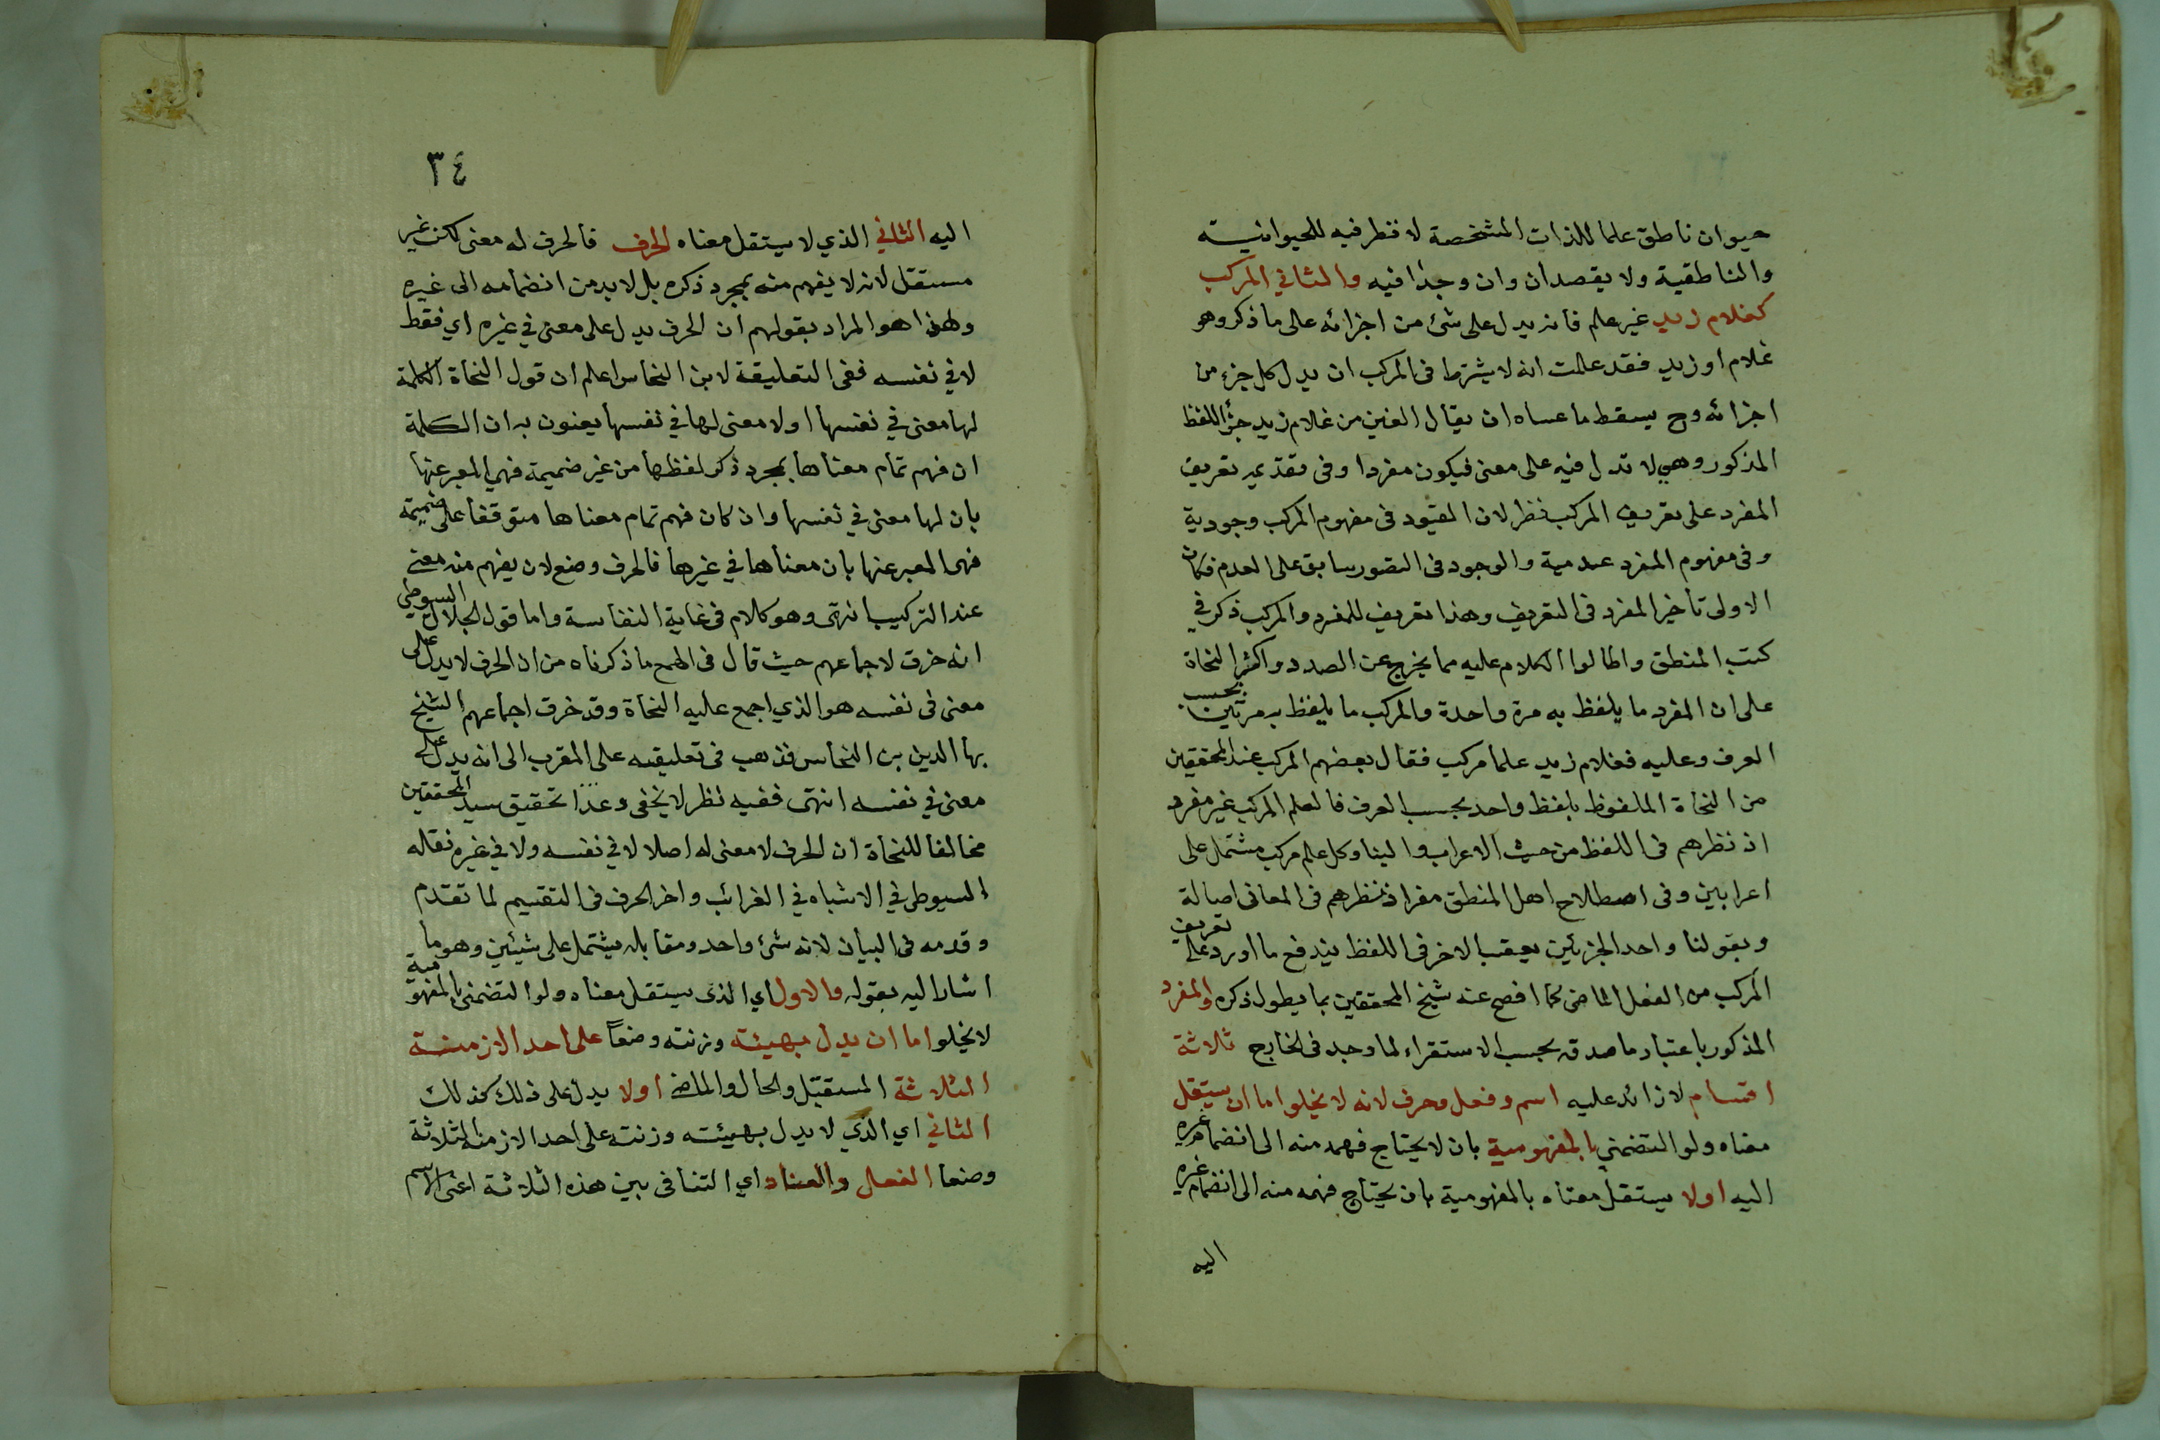 حيوان ناطق علما للذات المشخصة لا نظر فيه للحيوانية
والناطقية ولا يقصدان وان وجدا فيه والثاني المركب
كغلام زيد غير علم فانه يدل على شئ من اجزائه على ما ذكر وهو
غلام او زيد فقد علمت انه لا يشترط فى المركب ان يدل كل جزء من
اجزائه وح يسقط ما عساه ان يقال الغين من غلام زيد جزأ اللفظ
المذكور وهي لا تدل فيه على معنى فيكون مفردا وفى تقديم تعريف
المفرد على تعريف المركب نظر لان القيود فى مفهوم المركب وجودية
وفى مفهوم المفرد عدمية والوجود فى التصور سابق على العدم فكان
الاولى تأخير المفرد فى التعريف وهذا تعريف للمفرد والمركب ذكر في
كتب المنطق واطالوا الكلام عليه مما يخرج عن الصدد واكثر النحاة
على ان المفرد ما يلفظ به مرة واحدة والمركب ما يلفظ به مرتين بحسب
العرف وعليه فغلام زيد علما مركب فقال بعضهم المركب عند المحققين
من النحاة الملفوظ بلفظ واحد بحسب العرف فالعلم المركب غير مفرد
اذ نظرهم فى اللفظ من حيث الاعراب والبنا وكل علم مركب مشتمل على
اعرابين وفى اصطلاح اهل المنطق مفرد اذ نظرهم فى المعانى اصالة
وبقولنا واحد الجزئين بعقب الاخر فى اللفظ يندفع ما اورد على تعريف
المركب من الفعل الماضى كما افصح عنه شيخ المحققين بما يطول ذكره والمفرد
المذكور باعتبار ما صدقه بحسب الاستقراء لما وجد فى الخارج ثلاثة
اقسام لا زائد عليه اسم وفعل وحرف لانه لا يخلو اما ان يستقل
معناه ولو التضمني بالمفهومية بان لا يحتاج فهمه منه الى انضمام غيره
اليه اولا يستقل معناه بالمفهومية بان يحتاج فهمه منه الى انضمام غيره
اليه
٣٤
اليه الثاني الذي لا يستقل معناه الحرف فالحرف له معنى لكن غير
مستقل لانه لا يفهم منه بمجرد ذكره بل لا بد من انضمامه الى غيره
وهذا هو المراد بقولهم ان الحرف يدل على معنى في غيره اي فقط
لا في نفسه ففى التعليقة لابن النحاس اعلم ان قول النحاة الكلمة
لها معنى في نفسها او لا معنى لها في نفسها يعنون به ان الكلمة
ان فهم تمام معناها بمجرد ذكر لفظها من غير ضميمة فهي المعبر عنها
بان لها معنى في نفسها وان كان فهم تمام معناها متوقفا على ضميمة
فهى المعبر عنها بان معناها في غيرها فالحرف وضع لان يفهم منه معنى
عند التركيب انتهى وهو كلام فى غاية النفاسة واما قول الجلال السيوطي
انه خرق لاجماعهم حيث قال فى الهمع ما ذكرناه من ان الحرف لا يدل على
معنى فى نفسه هو الذي اجمع عليه النحاة وقد خرق اجماعهم الشيخ
بها الدين بن النحاس فذهب فى تعليقه على المقرب الى انه يدل على
معنى في نفسه انتهى ففيه نظر لا يخفى وعذا تحقيق سيد المحققين
مخالفا للنحاة ان الحرف لا معنى له اصلا لا في نفسه ولا في غيره نقله
السيوطى في الاشباه في الغرائب واخر الحرف فى التقسيم لما تقدم
وقدمه فى البيان لانه شئ واحد ومقابله يشتمل على شيئين وهو ما
اشار اليه بقوله والاول اي الذى يستقل معناه ولو التضمني بالمفهومية
لا يخلو اما ان يدل بهيئته وزنته وضعا على احد الازمنة
الثلاثة المستقبل والحال والماضي اولا يدل على ذلك كذلك
الثاني اي الذي لا يدل بهيئته وزنته على احد الازمنة الثلاثة
وضعا الفعل والعناد اي التنافى بين هذه الثلاثة اعنى الاسم